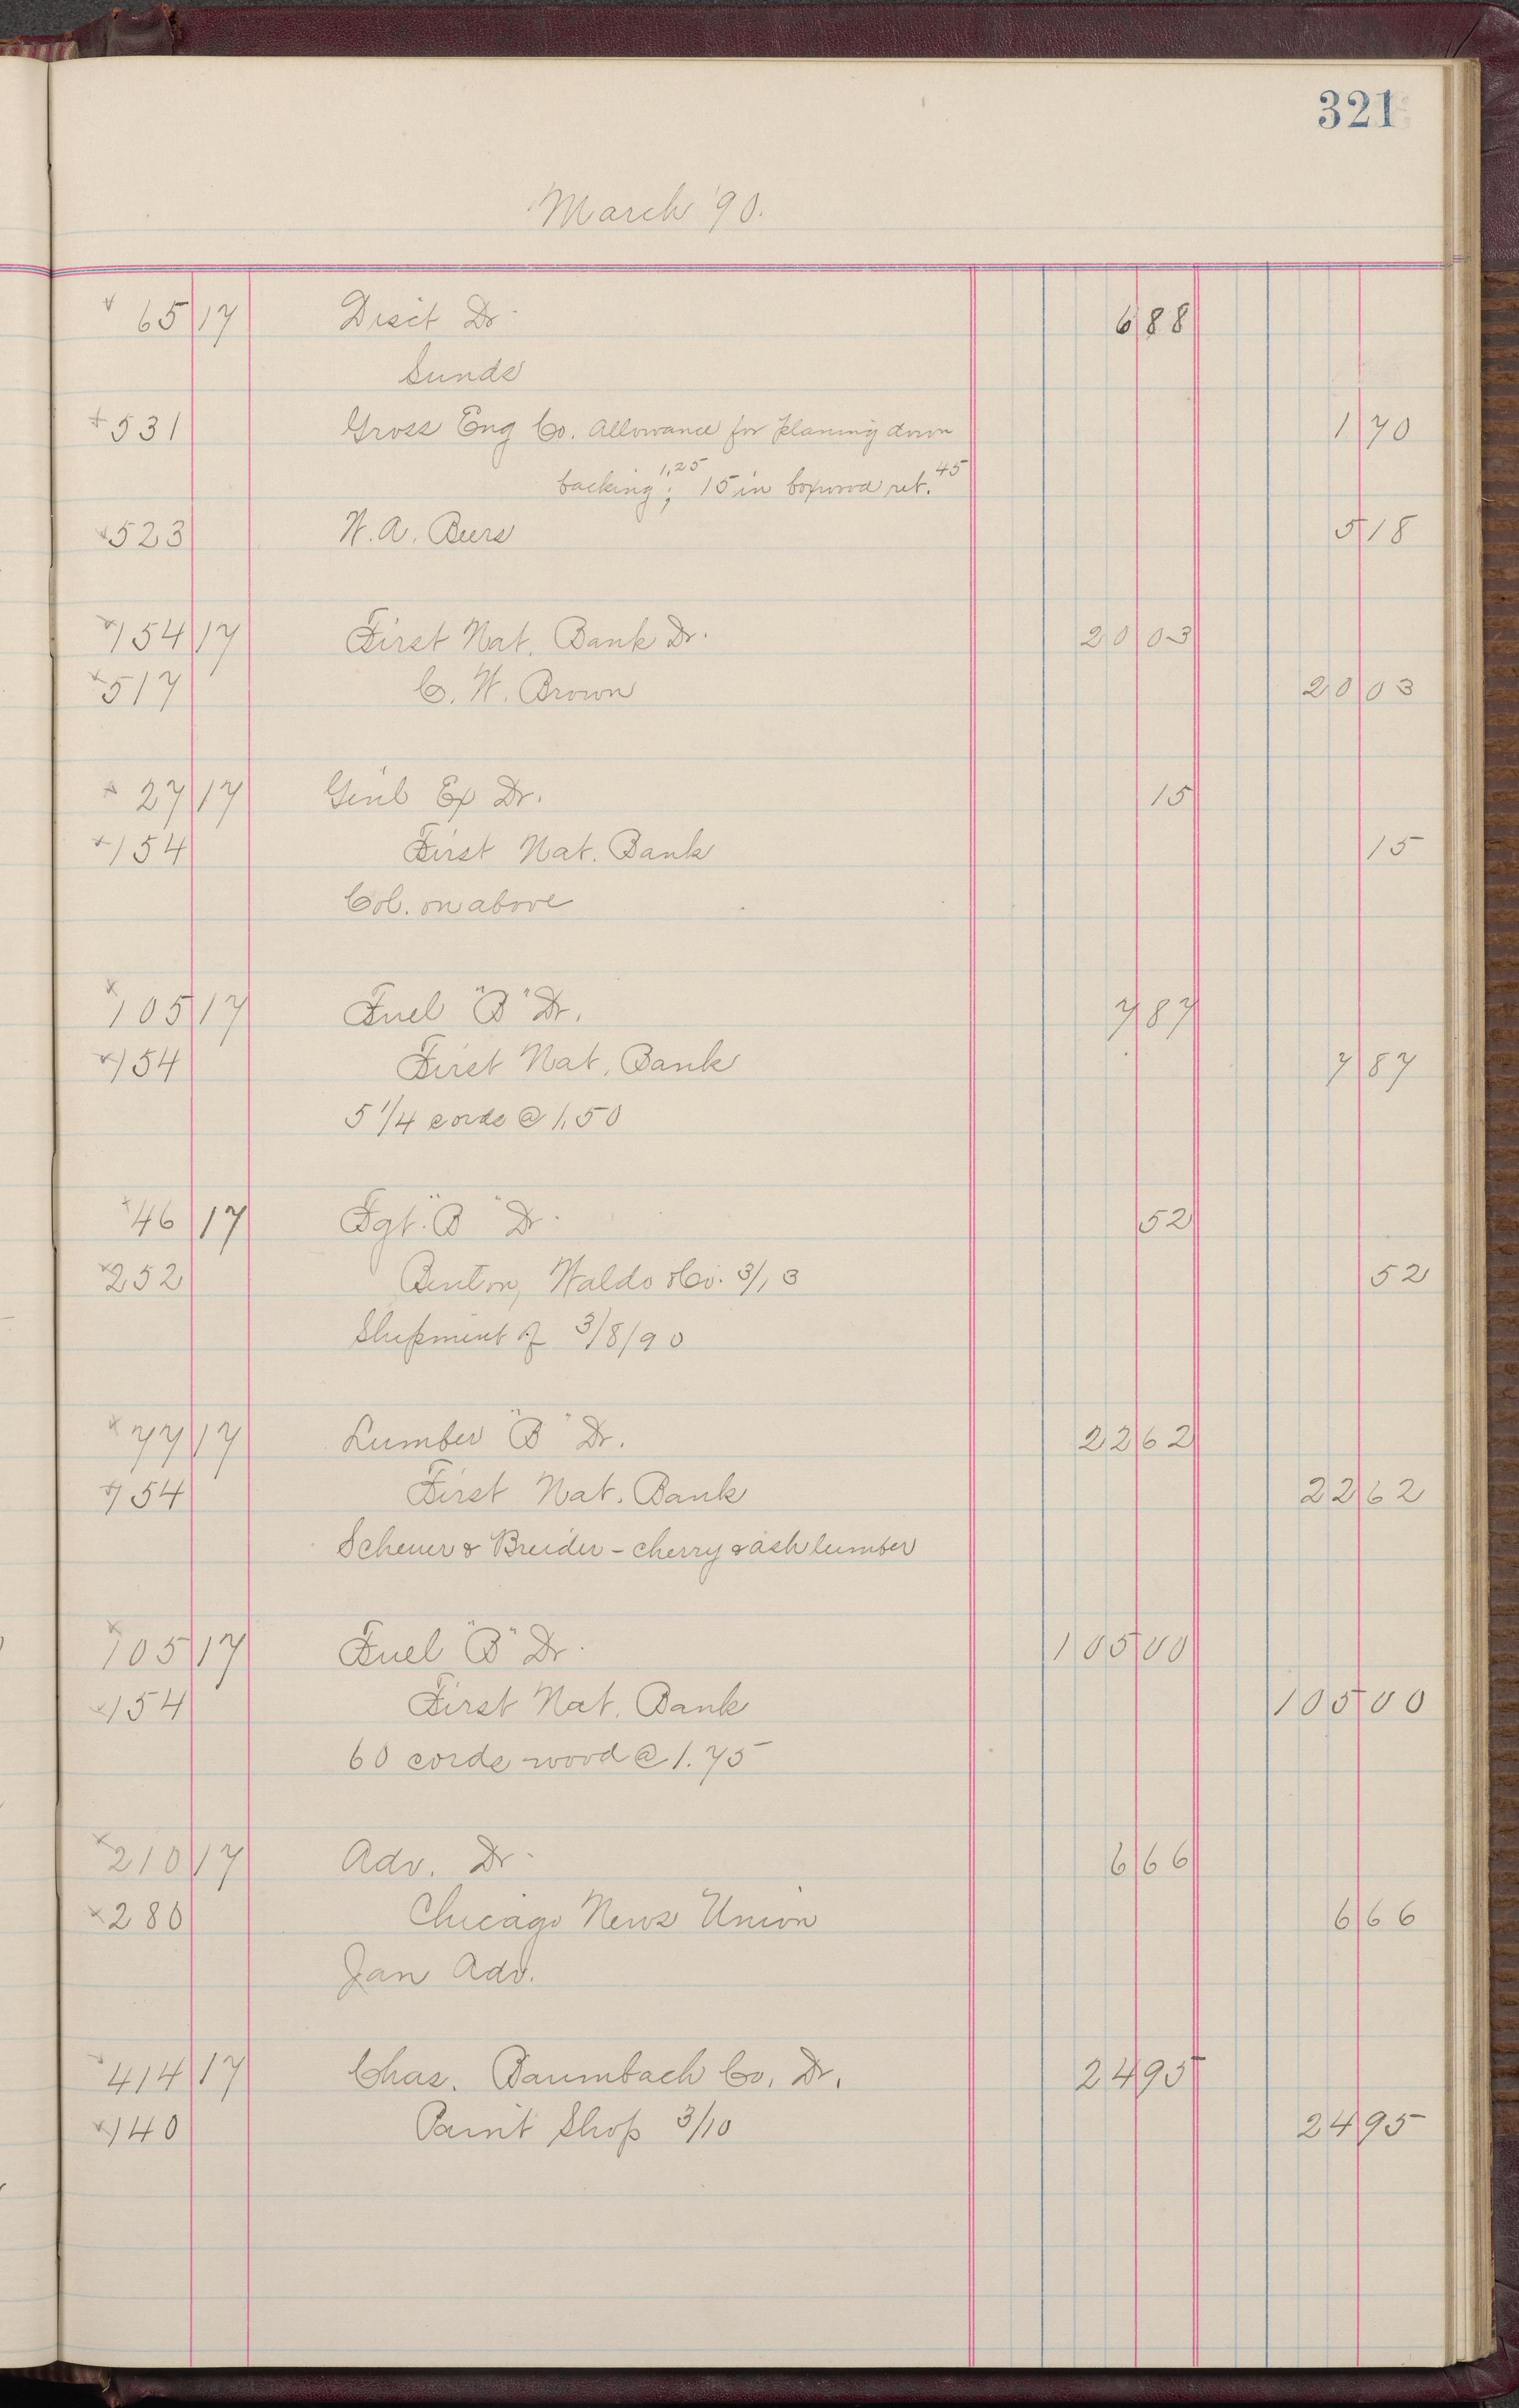 321
March '90.
65 17 Disct Dr 6 88
Sunds
531 Gross Eng Co. Allowance for planing down 1 70
backing 1,25; 15 in boxwood ret. 45
523 W. A. Beers 5 18
154 17 First Nat. Bank Dr. 20 03
517 C. W. Brown 20 03
27 17 Gen'l Ex Dr. 15
154 First Nat. Bank 15
Col. on above
105 17 Fuel "B" Dr. 7 87
154 First Nat. Bank 7 87
5 1/4 cords @ 1,50
46 17 Fgt. "B" Dr. 52
252 Benton, Waldo & Co. 3/13 52
Shipment of 3/8/90
77 17 Lumber "B" Dr. 22 62
154 First Nat. Bank 22 62
Scheuer & Breider - cherry & ash lumber
105 17 Fuel "B" Dr. 105 00
154 First Nat. Bank 105 00
60 cords wood @ 1.75
210 17 Adv. Dr. 6 66
280 Chicago News Union 6 66
Jan Adv.
414 17 Chas. Baumbach Co. Dr. 24 95
140 Paint Shop 3/10 24 95